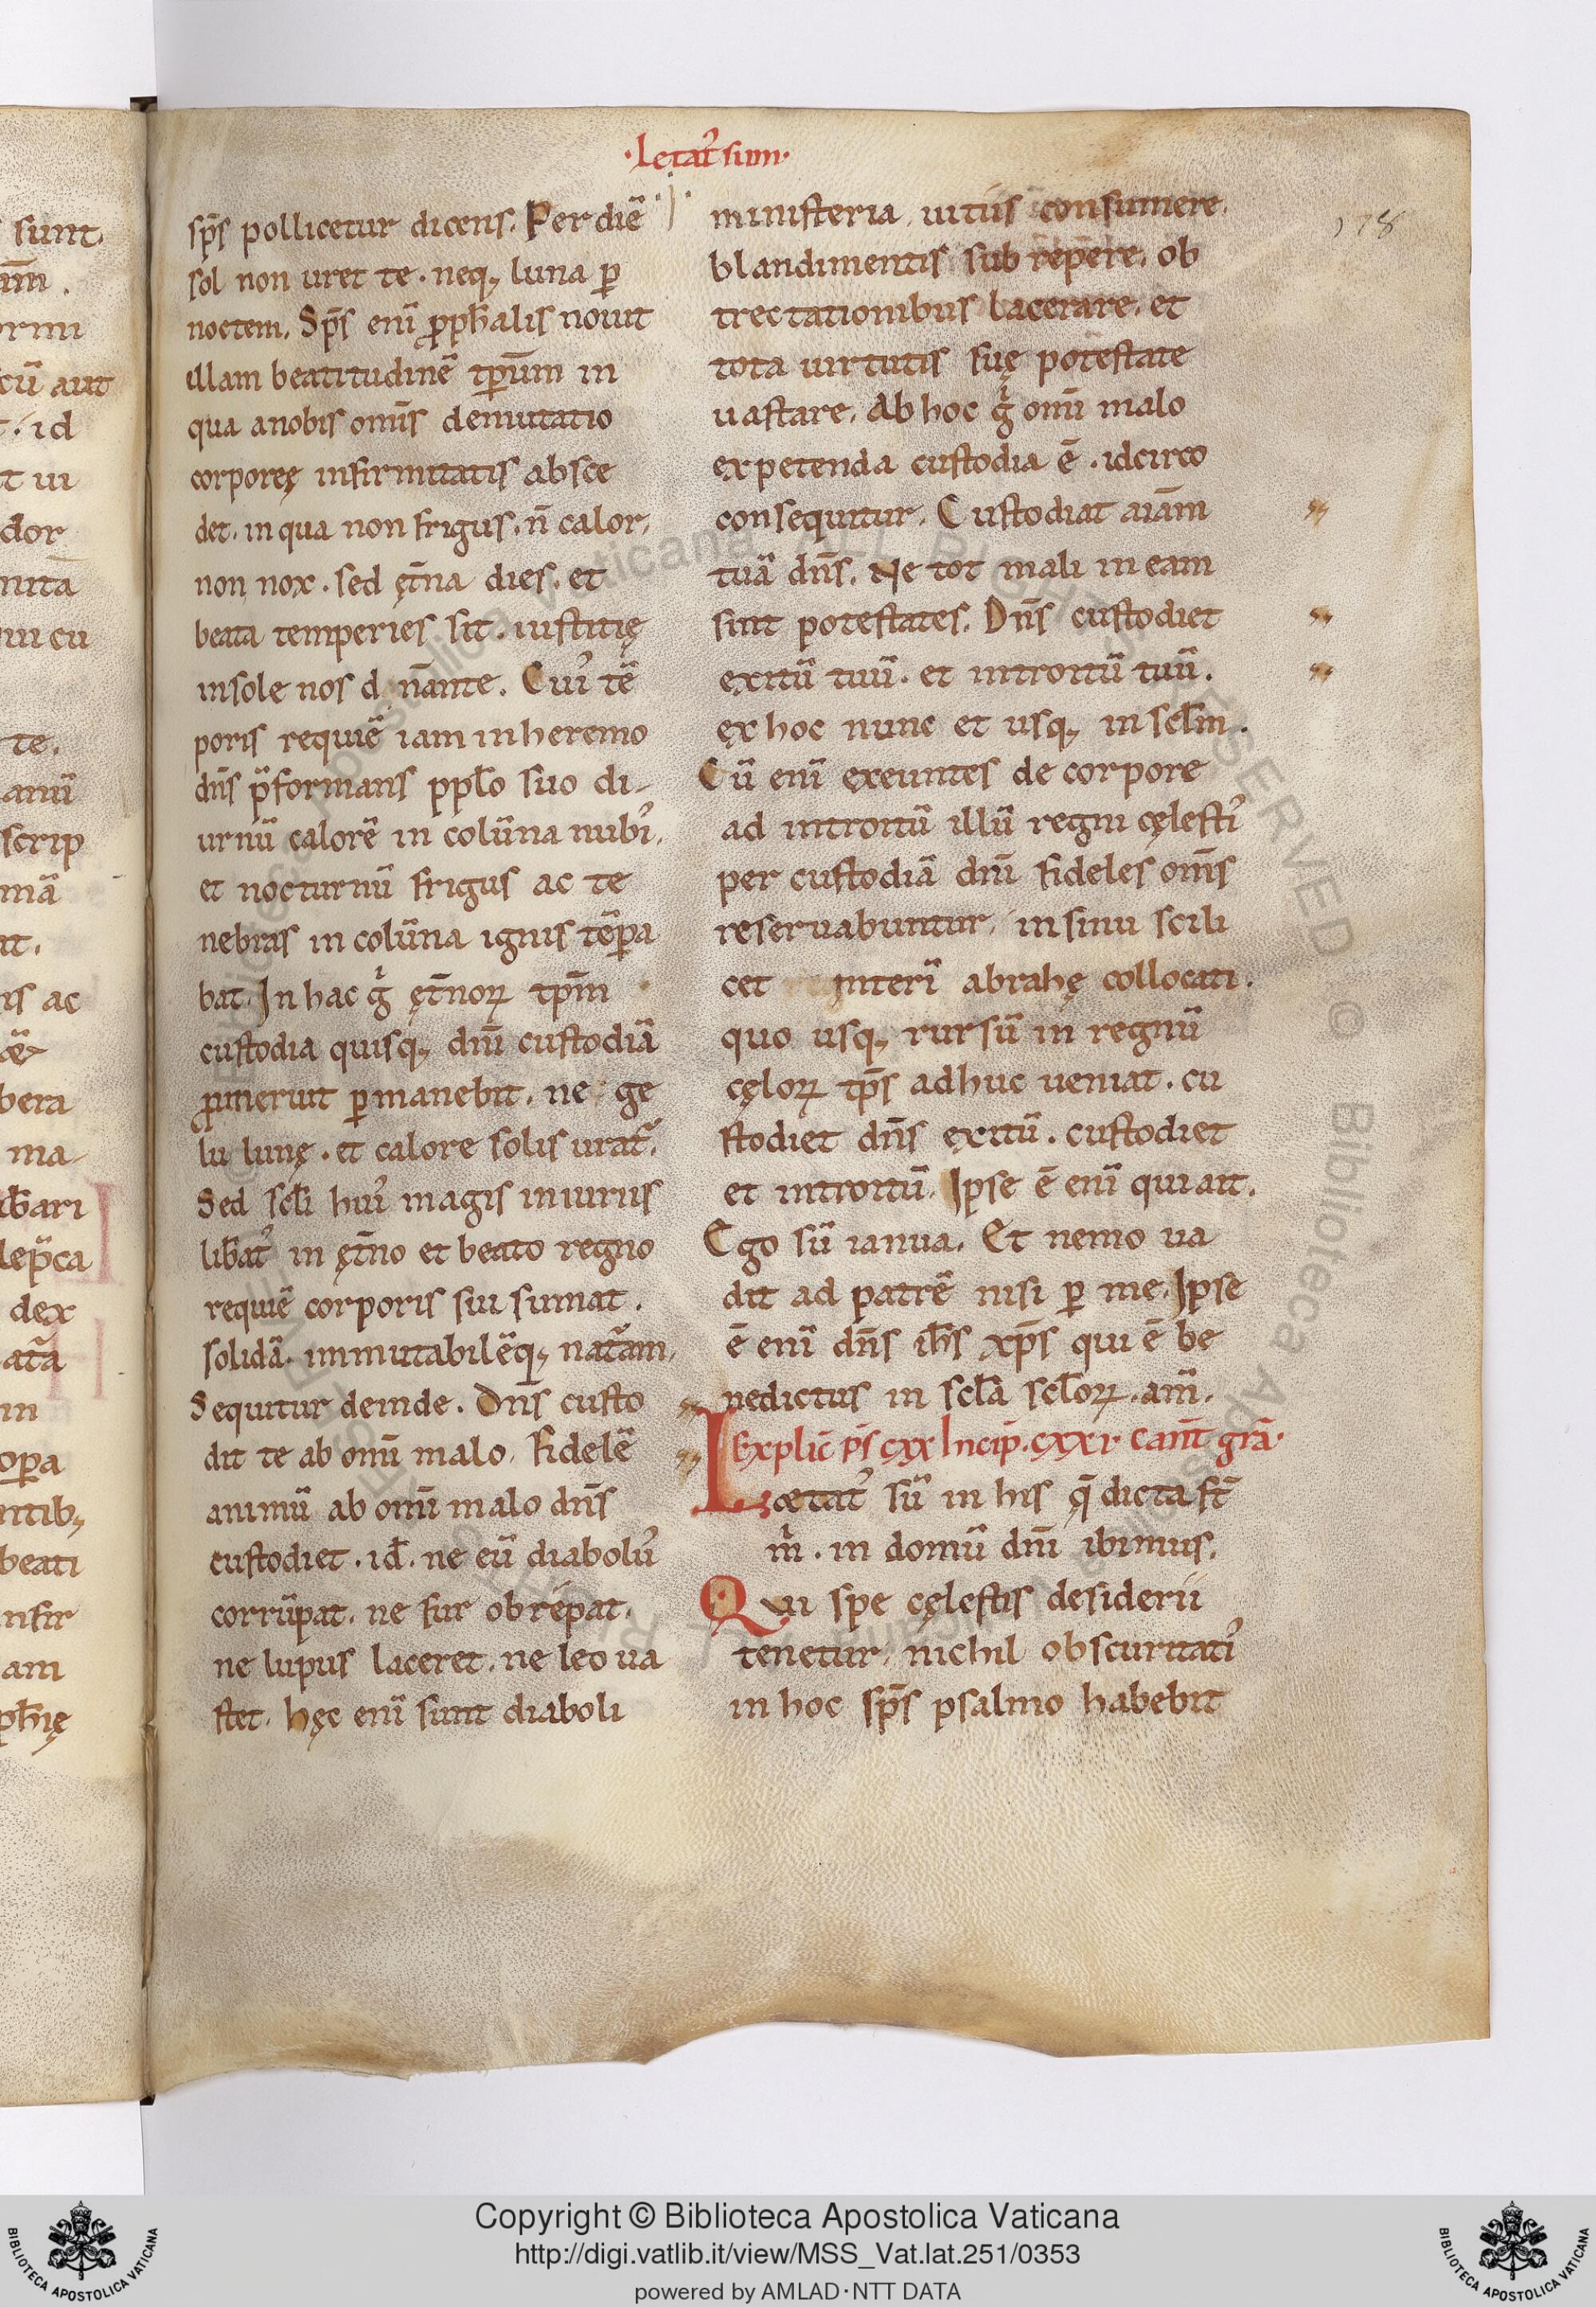 ·Letat᾽ sum·
178
sp̄s pollicetur dicens. Per diē
sol non uret te. neq; luna ꝑ
noctem. Sp̄s enī ꝓph̄alis nouit
illam beatitudinē tp̄um in
qua anobis om̄s demutatio
corporeę infirmitatis absce
det. in qua non frigus. n̄ calor.
non nox. sed ęt̄na dies. et
beata temperies sit. iustitię
insole nos d nānte. Cui᾽ tē
poris requiē iam inheremo
dn̄s p̄formans ppl̄o suo di-
urnū calorē in colūna nubi᾽.
et nocturnū frigus ac te
nebras in colūna ignis tēꝑa
bat. In hac g̊ ęt̄noꝝ tp̄m
custodia quisq; dn̄i custodiā
ꝓmeruit ꝑmanebit. ne ge
lu lunę. et calore solis urat᷑.
Sed scl̄i hui᾽ magis iniuriis
lib̄at᾽ in ęt̄no et beato regno
requiē corporis sui sumat.
solidā immutabilēq; nat᷑am.
Sequitur deinde. Dn̄s custo
dit te ab omī malo. Fidelē
animū ab omī malo dn̄s
custodiet. id̄. ne eū diabolu᾽
corrūpat. ne fur obrepat.
ne lupus laceret. ne leo ua
stet. hęc enī sunt diaboli
ministeria. uitiis consumere.
blandimentis sub repere. ob
trectationibus lacerare. et
tota uirtutis suę potestate
uastare. Ab hoc g̊ omī malo
expetenda custodia ē. idcirco
consequitur. Custodiat aīam
tuā dn̄s. Ne tot mali in eam
sint potestates. Dn̄s custodiet
exitū tuū. et introitū tuū.
ex hoc nunc et usq; in scl̄m.
Cū enī exeuntes de corpore
ad introitū illū regni cęlesti᾽
per custodiā dn̄i fideles om̄s
reseruabuntur. in sinu scili
cet interī abrahę collocati.
quo usq; rursū in regnū
cęloꝝ tp̄s adhuc ueniat. cu
stodiet dn̄s exitū. custodiet
et introitū. Ipse ē enī qui ait.
Ego sū ianua. Et nemo ua
dit ad patrē nisi ꝑ me. Ipse
ē enī dn̄s ih̄s xp̄s qui ē be
nedictus in scl̄a scl̄oꝝ. am̄.
Explic̄ p̄s cxx Incip. cxxi cant̄ grā.
Laetat᾽ sū in his q̄ dicta st̄
m̊. in domū dn̄i ibimus.
Qui spe cęlestis desiderii
tenetur. nichil obscuritati᾽
in hoc sp̄s psalmo habebit
sunt.
rmi
cū aut
t. id
t ui
dor
nita
ui cu
te.
anū
scrip
mā
at.
is ac
bera
ma-
b̄ari
dex
at᷑a
in
oꝑa
ntib;
beati
nfir
am
ph̄ię
Copyright © Biblioteca Apostolica Vaticana
http://digi.vatlib.it/view/MSS_Vat.lat.251/0353
powered by AMLAD·NTT DATA
BIBLIOTECA APOSTOLICA VATICANA
BIBLIOTECA APOSTOLICA VATICANA